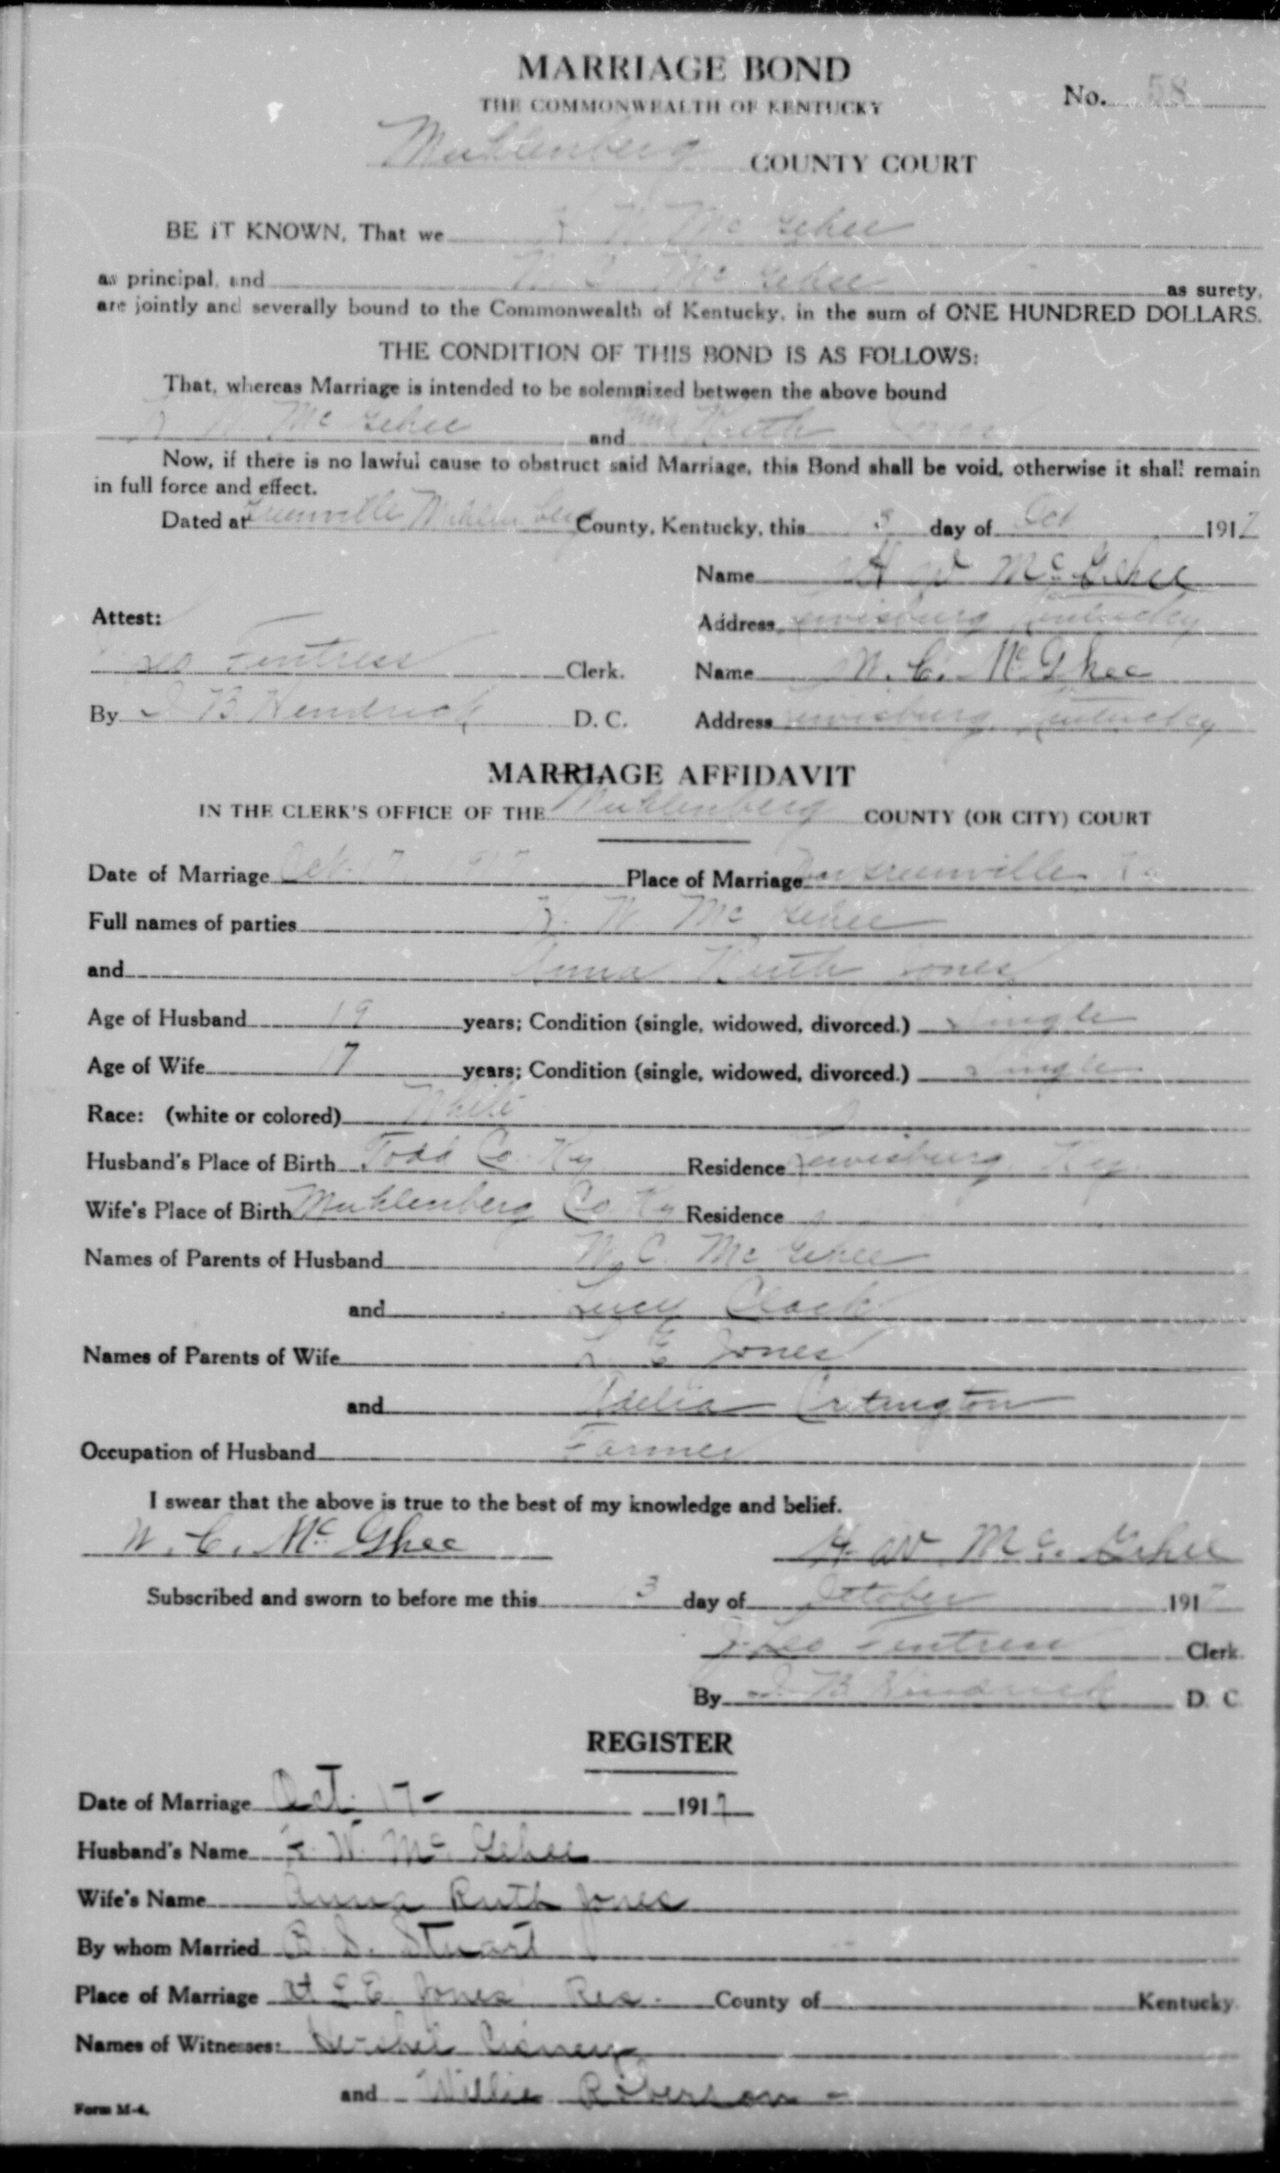 MARRIAGE BOND
THE COMMONWEALTH OF KENTUCKY
No. 58
Muhlenberg COUNTY COURT
BE IT KNOWN, That we W. McGehee
as principal, and McGehee as surety,
are jointly and severally bound to the Commonwealth of Kentucky, in the sum of ONE HUNDRED DOLLARS.
THE CONDITION OF THIS BOND IS AS FOLLOWS:
That, whereas Marriage is intended to be solemnized between the above bound
W. McGehee and Anna Ruth Jones
Now, if there is no lawful cause to obstruct said Marriage, this Bond shall be void, otherwise it shall remain
in full force and effect.
Dated at Greenville Muhlenberg County, Kentucky, this 3 day of Oct 1917
Name H W McGehee
Attest:
Address Lewisburg Kentucky
Leo Fentress Clerk.
Name W. C. McGhee
By B Hendrick D. C.
Address Lewisburg, Kentucky
MARRIAGE AFFIDAVIT
IN THE CLERK'S OFFICE OF THE Muhlenberg COUNTY (OR CITY) COURT
Date of Marriage Oct. 17, 1917 Place of Marriage Greenville Ky
Full names of parties W. McGehee
and Anna Ruth Jones
Age of Husband 19 years; Condition (single, widowed, divorced.) Single
Age of Wife 17 years; Condition (single, widowed, divorced.) Single
Race: (white or colored) White
Husband's Place of Birth Todd Co. Ky Residence Lewisburg, Ky
Wife's Place of Birth Muhlenberg Co Ky Residence
Names of Parents of Husband W. C. McGehee
and Lucy Clack
Names of Parents of Wife L E Jones
and Adelia
Occupation of Husband Farmer
I swear that the above is true to the best of my knowledge and belief.
W. C. McGhee H W McGehee
Subscribed and sworn to before me this 3 day of October 1917
Leo Fentress Clerk.
By B Hendrick D. C.
REGISTER
Date of Marriage Oct. 17- 1917
Husband's Name W. McGehee
Wife's Name Anna Ruth Jones
By whom Married B. S. Stuart
Place of Marriage At L E Jones' Res. County of Kentucky.
Names of Witnesses: Hershel Cisney
and Willie Roberson -
Form M-4.